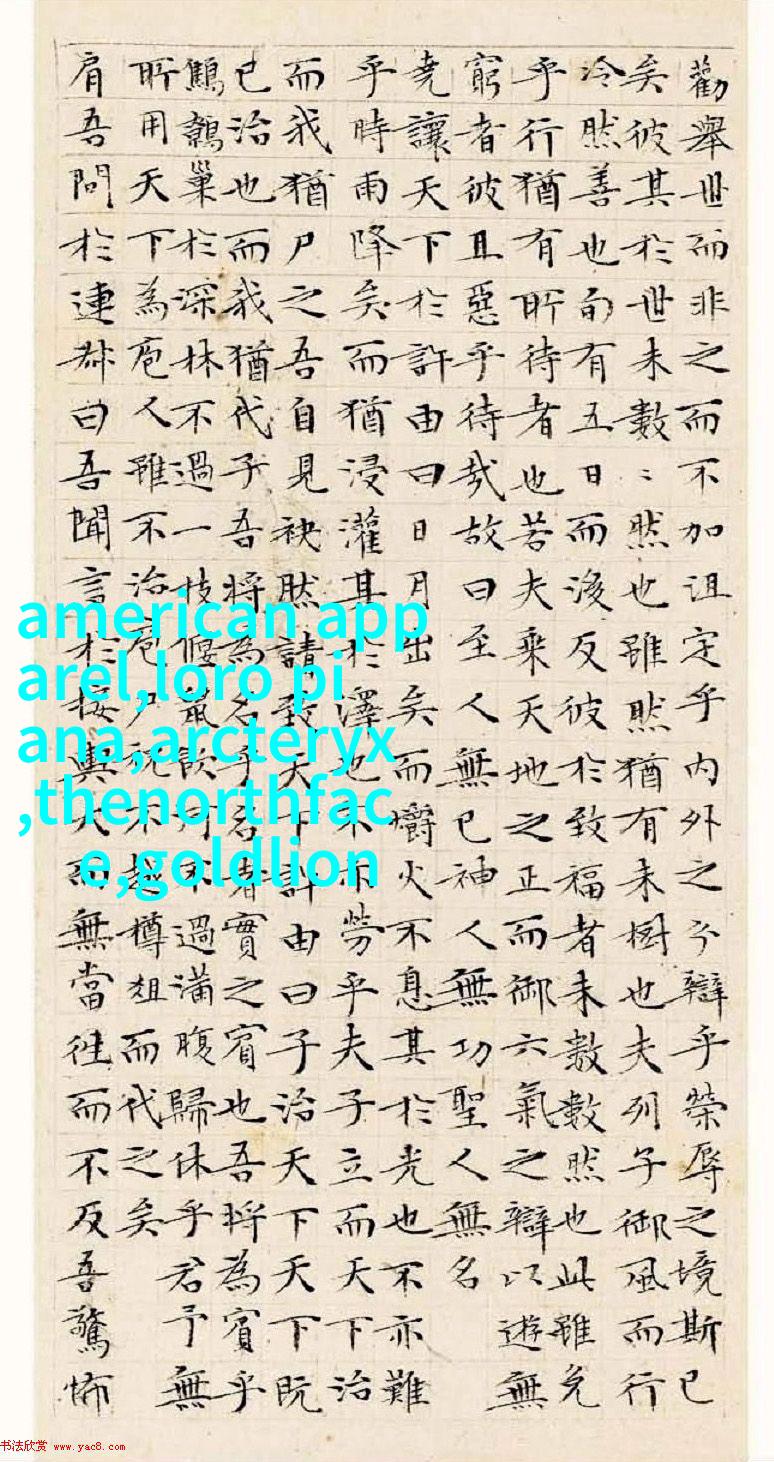 勸舉世而非之而不加沮定乎內外之分辯乎榮辱之境斯已
矣彼其於世未數〻然也雖然猶有未樹也夫列子御風而行
冷然善也旬有五日而後反彼於致福者未數數然也此雖免
乎行猶有所待者也若夫乘天地之正而御六氣之辯以遊無
窮者彼且惡乎待哉故曰至人無已神人無功聖人無名
堯讓天下於許由曰日月出矣而爝火不息其於光也不亦難
乎時雨降矣而猶浸灌其於澤也不亦勞乎夫子立而天下治
而我猶尸之吾自見缺然請致天下許由曰子治天下天下既
已治也而我猶代子吾將為名乎名者實之賓也吾將為賓乎
鷦鷯巢於深林不過一枝偃鼠飲河不過滿腹歸休乎君予無
所用天下為庖人雖不治庖尸祝不越樽俎而代之矣
肩吾問於連叔曰吾聞言於接輿大而無當往而不反吾驚怖
american app
arel,loro pi
ana,arcteryx
,thenorthfac
e,goldlion
书法欣赏 www.yac8.com